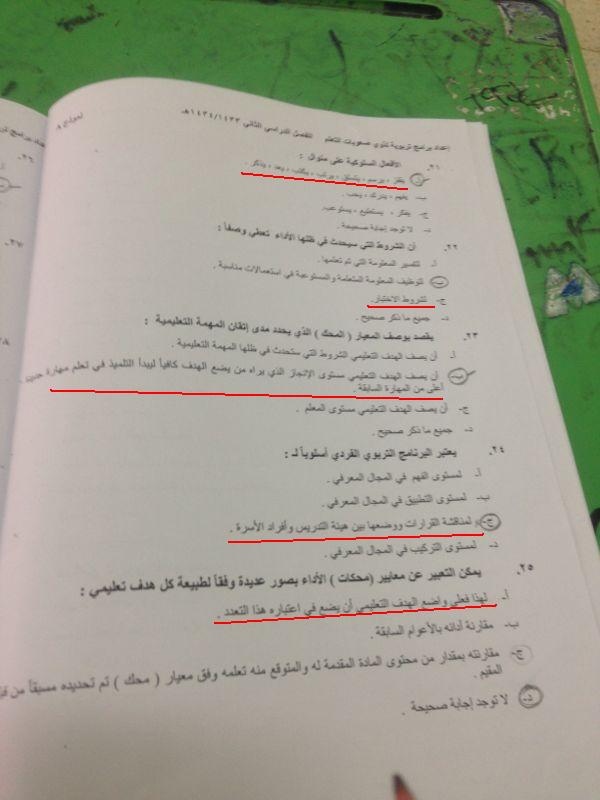 إعداد برامج تربوية لذوي صعوبات التعلم الفصل الدراسي الثاني ١٤٣٤/١٤٣٣هـ
٢١. الأفعال السلوكية على منوال :
أ. يقفز ، يرسم ، يتسلق ، يرتب ، يكتب ، يعد ، يذكر .
ب- يفهم ، يدرك ، يحب .
ج- يفكر ، يستطيع ، يستوعب.
د- لا توجد إجابة صحيحة .
٢٢. أن الشروط التي سيحدث في ظلها الأداء تعطي وصفاً :
أ. لتفسير المعلومة التي تم تعلمها .
ب- لتوظيف المعلومة المتعلمة والمستوعبة في استعمالات مناسبة .
ج- لشروط الاختبار.
د- جميع ما ذكر صحيح .
٢٣. يقصد بوصف المعيار ( المحك ) الذي يحدد مدى إتقان المهمة التعليمية :
أ. أن يصف الهدف التعليمي الشروط التي ستحدث في ظلها المهمة التعليمية .
ب- أن يصف الهدف التعليمي مستوى الإنجاز الذي يراه من يضع الهدف كافياً ليبدأ التلميذ في تعلم مهارة جديدة
أعلى من المهارة السابقة.
ج- أن يصف الهدف التعليمي مستوى المعلم .
د- جميع ما ذكر صحيح .
٢٤. يعتبر البرنامج التربوي الفردي أسلوباً لـ :
أ. لمستوى الفهم في المجال المعرفي .
ب- لمستوى التطبيق في المجال المعرفي .
ج- لمناقشة القرارات ووضعها بين هيئة التدريس وأفراد الأسرة .
د- لمستوى التركيب في المجال المعرفي .
٢٥. يمكن التعبير عن معايير (محكات ) الأداء بصور عديدة وفقاً لطبيعة كل هدف تعليمي :
أ. لهذا فعلى واضع الهدف التعليمي أن يضع في اعتباره هذا التعدد .
ب- مقارنة أدائه بالأعوام السابقة .
ج- مقارنته بمقدار من محتوى المادة المقدمة له والمتوقع منه تعلمه وفق معيار ( محك ) تم تحديده مسبقاً من
المقيم .
د- لا توجد إجابة صحيحة .